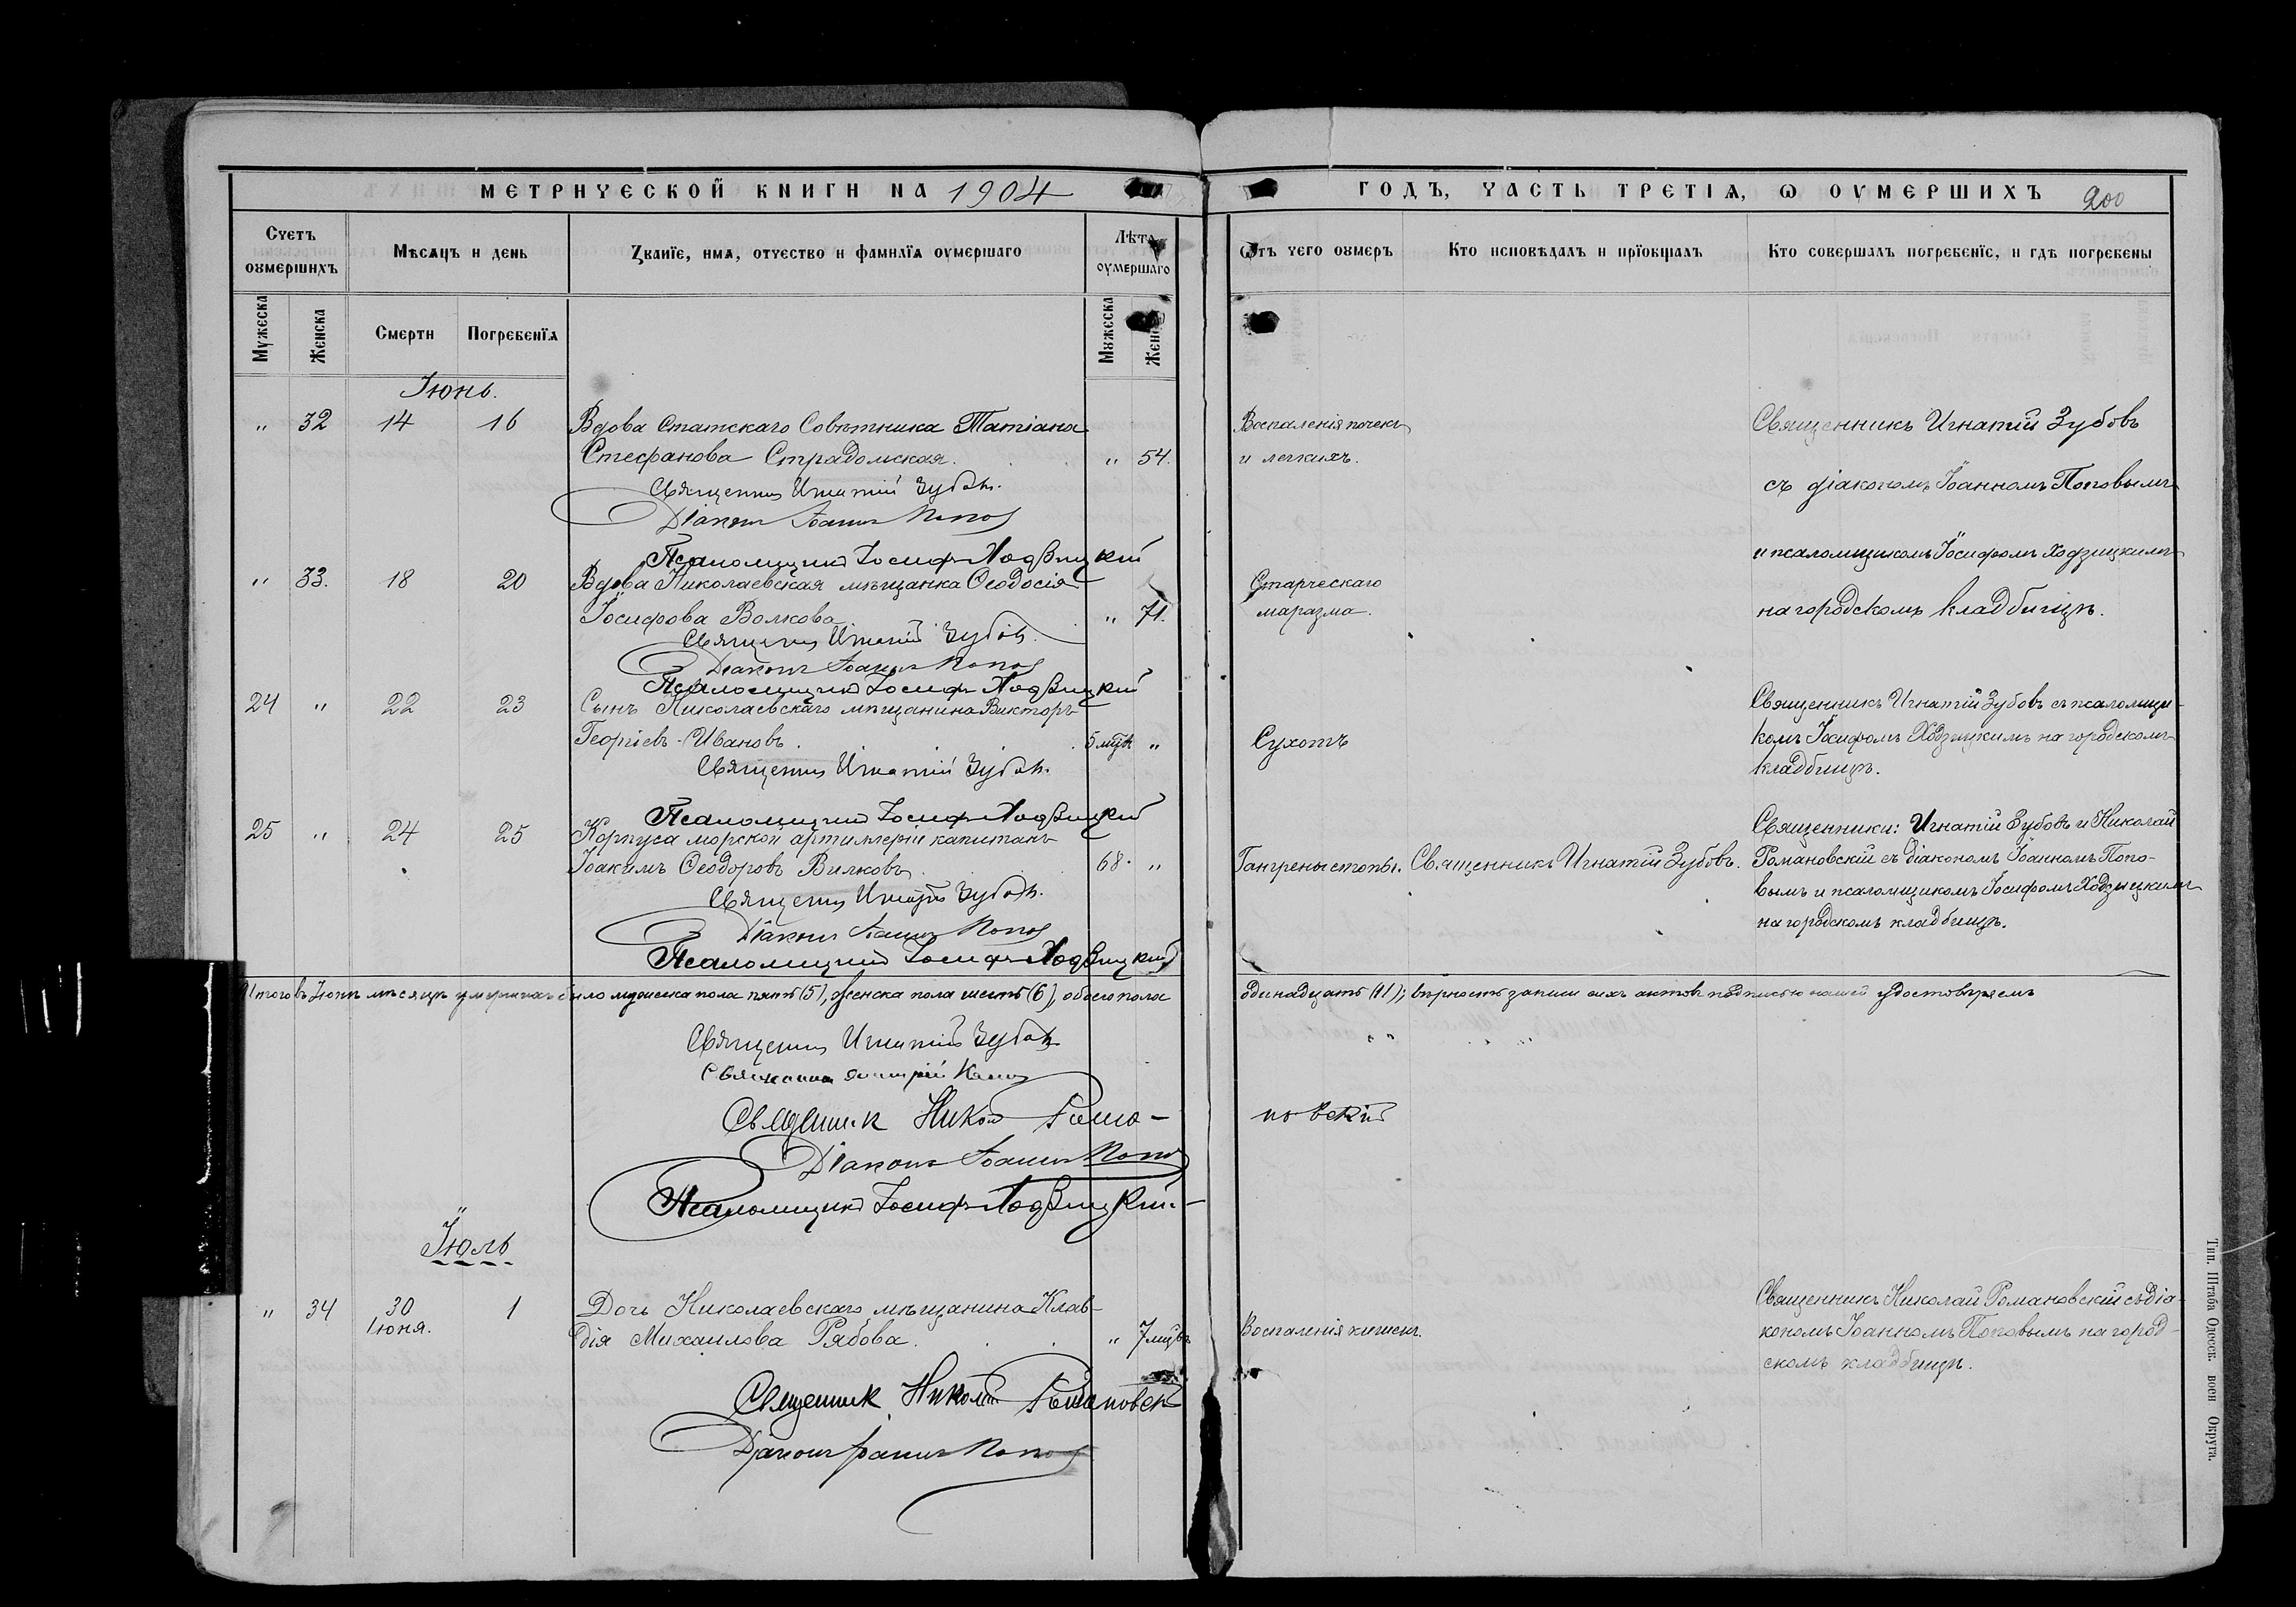 МЕТРИЧЕСКОЙ КНИГИ НА 1904
ГОДЪ, ЧАСТЬ ТРЕТІѦ, Ѡ ОУМЕРШИХЪ 200
Счетъ оумершихъ
Мѣсѧцъ и день
Званїе, имѧ, отчество и фамилїа оумершаго
Лѣта оумершаго
Ѿтъ чего оумеръ
Кто исповѣдалъ и прїобщалъ
Кто совершалъ погребенїе, и гдѣ погребены
Мужеска
Женска
Смерти
Погребенїѧ
Мужеска
Женска
Іюнь.
" 32 14 16 Вдова Статскаго Совѣтника Татіана
Стефанова Страдомская. " 54.
Воспаленія почекъ
и легкихъ.
Священникъ Игнатій Зубовъ
съ діакономъ Іоанномъ Поповымъ
и псаломщикомъ Іосифомъ Ходзицкимъ
на городскомъ кладбищѣ.
Священникъ Игнатій Зубовъ.
Діаконъ Іоаннъ Поповъ
Псаломщикъ Іосифъ Ходзицкій
" 33. 18 20 Вдова Николаевская мѣщанка Ѳеодосія
Іосифова Волкова " 71.
Старческаго
маразма.
Священникъ Игнатій Зубовъ.
Діаконъ Іоаннъ Поповъ
Псаломщикъ Іосифъ Ходзицкій
24 " 22 23 Сынъ Николаевскаго мѣщанина Викторъ
Георгіевъ Ивановъ. 5 мцъ "
Сухотъ
Священникъ Игнатій Зубовъ съ псаломщи-
комъ Іосифомъ Ходзицкимъ на городскомъ
кладбищѣ.
Священникъ Игнатій Зубовъ.
Псаломщикъ Іосифъ Ходзицкій
25 " 24 25 Корпуса морской артиллеріи капитанъ
Іоакимъ Ѳеодоровъ Вилковъ. 68. "
Гангрены стопы. Священникъ Игнатій Зубовъ.
Священники: Игнатій Зубовъ и Николай
Романовскій съ діакономъ Іоанномъ Попо-
вымъ и псаломщикомъ Іосифомъ Ходзицкимъ
на городскомъ кладбищѣ.
Священникъ Игнатій Зубовъ.
Діаконъ Іоаннъ Поповъ
Псаломщикъ Іосифъ Ходзицкій
Итого въ Іюнѣ мѣсяцѣ умершихъ было мужеска пола пять (5), женска пола шесть (6), обоего пола
одинадцать (11); вѣрность записи сихъ актовъ подписью нашей удостовѣряемъ
Священникъ Игнатій Зубовъ
Священникъ Димитрій
Священник Никол Рома-
новскій
Діаконъ Іоаннъ Поповъ
Псаломщикъ Іосифъ Ходзицкій
Іюль
" 34 30 Іюня. 1 Дочь Николаевскаго мѣщанина Клав-
дія Михаилова Рябова. " 7 мцъ
Воспаленія кишекъ.
Священникъ Николай Романовскій съ діа-
кономъ Іоанномъ Поповымъ на город-
скомъ кладбищѣ.
Священник Николай Романовск
Діаконъ Іоаннъ Поповъ
Тип. Штаба Одесск. воен Округа.